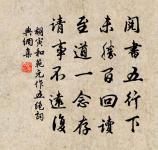 閱書五行下
未勝百回讀
至道一念存
請事不遠復
胡寅和范元作五絕詞
典網集